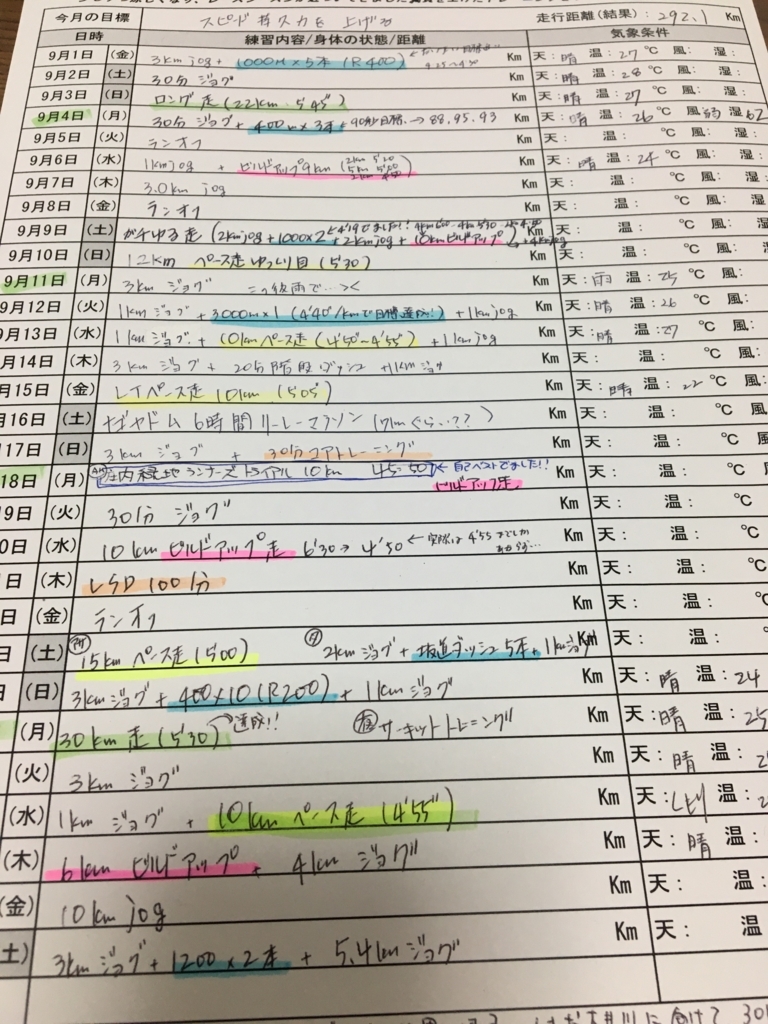 今月の目標 スピード持久力を上げる 走行距離(結果): 292.1 Km
日時 練習内容/身体の状態/距離 気象条件
9月1日 (金) 3km jog + 1000M×5本 (R400) Km 天:晴 温:27 ℃ 風: 湿:
9月2日 (土) 30分ジョグ Km 天:晴 温:28 ℃ 風: 湿:
9月3日 (日) ロング走 (22km 5'45") Km 天:晴 温:27 ℃ 風: 湿:
9月4日 (月) 30分ジョグ + 400m×3本 90秒目標→88,95,93 Km 天:晴 温:26 ℃ 風:弱 湿:62
9月5日 (火) ランオフ Km 天: 温: ℃ 風: 湿:
9月6日 (水) 1kmjog + ビルドアップ9km Km 天:晴 温:24 ℃ 風: 湿:
9月7日 (木) 3.0km jog Km 天: 温: ℃ 風: 湿:
9月8日 (金) ランオフ Km 天: 温: ℃ 風: 湿:
9月9日 (土) ガチゆる走 (2kmjog+1000×2 +2kmjog+10kmビルドアップ)+4kmjog 天: 温: ℃ 風:
9月10日 (日) 12km ペース走ゆっくり目 (5'30) Km 天: 温: ℃ 風:
9月11日 (月) 3km ジョグ この後雨で…>< Km 天:雨 温:25 ℃ 風:
9月12日 (火) 1kmジョグ + 3000m×1 (4'40"/kmで目標達成!!) +1kmjog Km 天:晴 温:26 ℃ 風:
9月13日 (水) 1kmジョグ + 10kmペース走 (4'50〜4'55") +1kmjog Km 天:晴 温:27 ℃ 風:
月14日 (木) 3kmジョグ + 20分階段ダッシュ +1kmジョグ Km 天: 温: ℃ 風:
月15日 (金) LTペース走 10km (5'05") Km 天:晴 温:22 ℃ 風:
月16日 (土) ナゴヤドム 6時間リーレーマラソン (17kmぐらい??) Km 天: 温: ℃ 風
17日 (日) 3kmジョグ + 30分コアトレーニング Km 天: 温: ℃
18日 (月) 庄内緑地ランナーズトライアル 10km 45'50" ←自己ベストでました!! Km 天: 温: ℃
ビルドアップ走
9日 (火) 30分ジョグ Km 天: 温: ℃
0日 (水) 10kmビルドアップ走 6'30→4'50 ←実際は4'55までしか Km 天: 温: ℃
日 (木) LSD 100分 Km 天: 温: ℃
日 (金) ランオフ Km 天: 温:
日 (土) 15kmペース走 (5'00) 夕 2kmジョグ+坂道ダッシュ5本+1kmジョグ Km 天: 温:
(日) 3kmジョグ + 400×10 (R200) + 1kmジョグ Km 天:晴 温:24
(月) 30km走 (5'30) 達成!! 夜 サーキットトレーニング Km 天:晴 温:25
(火) 3kmジョグ Km 天:晴 温:2
(水) 1kmジョグ + 10kmペース走 (4'55") Km 天:くもり 温:
(木) 6kmビルドアップ + 4kmジョグ Km 天:晴 温:
(金) 10km jog Km 天: 温:
土) 3kmジョグ + 1200×2本 + 5.4kmジョグ Km 天: 温